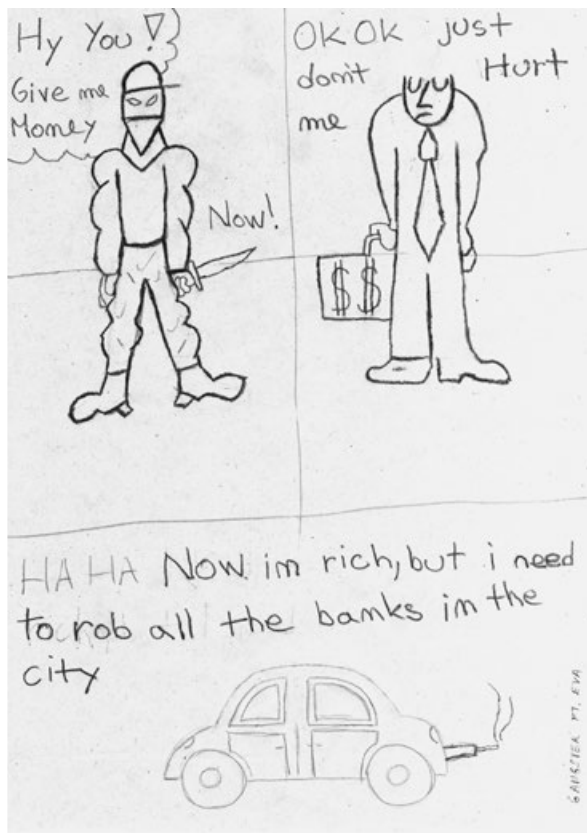 Hy You!
Give me
Money
Now!
OK OK just
don't Hurt
me
$$
HA HA Now im rich, but i need
to rob all the banks in the
city